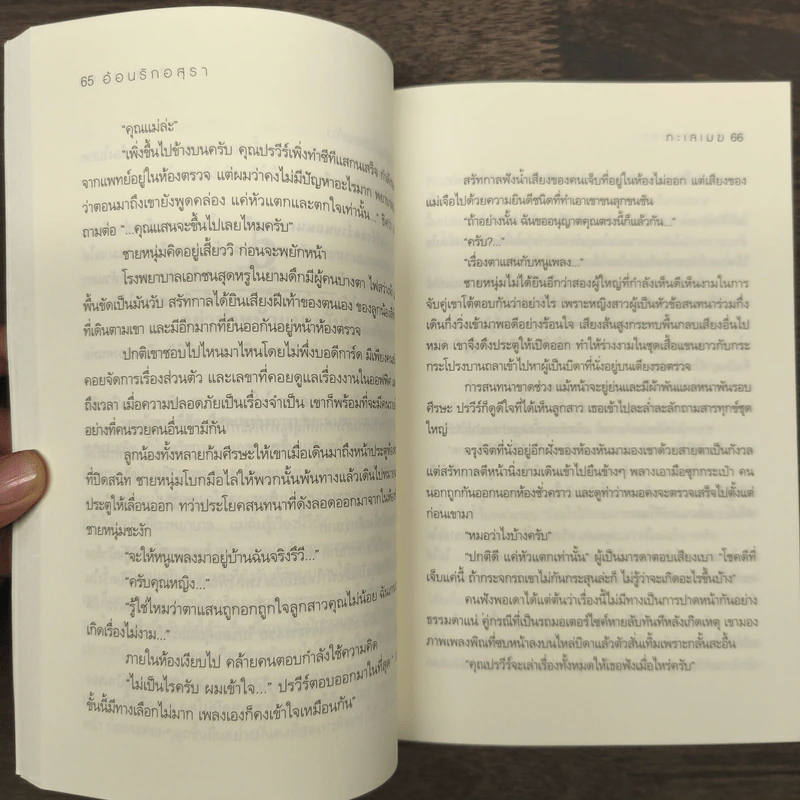 65 อ้อนรักอสุรา
"คุณแม่ล่ะ"
"เพิ่งขึ้นไปข้างบนครับ คุณปรวีร์เพิ่งทำซีทีแสกนเสร็จ
จากแพทย์อยู่ในห้องตรวจ แต่ผมว่าคงไม่มีปัญหาอะไรมาก
ว่าตอนมาถึงเขายังพูดคล่อง แค่หัวแตกและตกใจเท่านั้น..."
ถามต่อ "...คุณแสนจะขึ้นไปเลยไหมครับ"
ชายหนุ่มคิดอยู่เสี้ยววิ ก่อนจะพยักหน้า
โรงพยาบาลเอกชนสุดหรูในยามดึกมีผู้คนบางตา
พื้นขัดเป็นมันวับ สรัทกาลได้ยินเสียงฝีเท้าของตนเอง
ที่เดินตามเขา และมีอีกมากที่ยืนออกันอยู่หน้าห้องตรวจ
ปกติเขาชอบไปไหนมาไหนโดยไม่พึ่งบอดีการ์ด มีเพียง
คอยจัดการเรื่องส่วนตัว และเลขาที่คอยดูแลเรื่องงานในออฟฟิศ
ถึงเวลา เมื่อความปลอดภัยเป็นเรื่องจำเป็น เขาก็พร้อมที่จะมี
อย่างที่คนรวยคนอื่นเขามีกัน
ลูกน้องทั้งหลายก้มศีรษะให้เขาเมื่อเดินมาถึงหน้าประตู
ที่ปิดสนิท ชายหนุ่มโบกมือไล่ให้พวกนั้นพ้นทางแล้วเดินไป
ประตูให้เลื่อนออก ทว่าประโยคสนทนาที่ดังลอดออกมาจาก
ชายหนุ่มชะงัก
"จะให้หนูเพลงมาอยู่บ้านฉันจริงรึวี..."
"ครับคุณหญิง..."
"รู้ใช่ไหมว่าตาแสนถูกอกถูกใจลูกสาวคุณไม่น้อย
เกิดเรื่องไม่งาม..."
ภายในห้องเงียบไป คล้ายคนตอบกำลังใช้ความคิด
"ไม่เป็นไรครับ ผมเข้าใจ..." ปรวีร์ตอบออกมาในที่สุด
ขั้นนี้มีทางเลือกไม่มาก เพลงเองก็คงเข้าใจเหมือนกัน"
กะเลเมฆ 66
สรัทกาลฟังน้ำเสียงของคนเจ็บที่อยู่ในห้องไม่ออก แต่เสียงของ
แม่เจือไปด้วยความยินดีชนิดที่ทำเอาเขาขนลุกขนชัน
"ถ้าอย่างนั้น ฉันขออนุญาตคุณตรงนี้ก็แล้วกัน..."
"ครับ?..."
"เรื่องตาแสนกับหนูเพลง..."
ชายหนุ่มไม่ได้ยินอีกว่าสองผู้ใหญ่ที่กำลังเห็นดีเห็นงามในการ
จับคู่เขาโต้ตอบกันว่าอย่างไร เพราะหญิงสาวผู้เป็นหัวข้อสนทนาร่วมกึ่ง
เดินกึ่งวิ่งเข้ามาพอดีอย่างร้อนใจ เสียงส้นสูงกระทบพื้นกลบเสียงอื่นไป
หมด เขาจึงดึงประตูให้เปิดออก ทำให้ร่างงามในชุดเสื้อแขนยาวกับกระ
กระโปรงบานถลาเข้าไปหาผู้เป็นบิดาที่นั่งอยู่บนเตียงรอตรวจ
การสนทนาขาดช่วง แม้หน้าจะยู่ย่นและมีผ้าพันแผลหนาพันรอบ
ศีรษะ ปรวีร์ก็ดูดีใจที่ได้เห็นลูกสาว เธอเข้าไปละล่ำละลักถามสารทุกข์ชุด
ใหญ่
จรุงจิตที่นั่งอยู่อีกฝั่งของห้องหันมามองเขาด้วยสายตาเป็นกังวล
แต่สรัทกาลตีหน้านิ่งยามเดินเข้าไปยืนข้างๆ พลางเอามือซุกกระเป๋า คน
นอกถูกกันออกนอกห้องชั่วคราว และดูท่าว่าหมอคงจะตรวจเสร็จไปตั้งแต่
ก่อนเขามา
"หมอว่าไงบ้างครับ"
"ปกติดี แค่หัวแตกเท่านั้น" ผู้เป็นมารดาตอบเสียงเบา "โชคดีที่
เจ็บแค่นี้ ถ้ากระจกรถเขาไม่กันกระสุนล่ะก็ ไม่รู้ว่าจะเกิดอะไรขึ้นบ้าง"
คนฟังพอเดาได้แต่ต้นว่าเรื่องนี้ไม่มีทางเป็นการปาดหน้ากันอย่าง
ธรรมดาแน่ คู่กรณีที่เป็นรถมอเตอร์ไซค์หายลับทันทีหลังเกิดเหตุ เขามอง
ภาพเพลงพิณที่ซบหน้าลงบนไหล่บิดาแล้วตัวสั่นเทิ้มเพราะกลั้นสะอื้น
"คุณปรวีร์จะเล่าเรื่องทั้งหมดให้เธอฟังเมื่อไหร่ครับ"